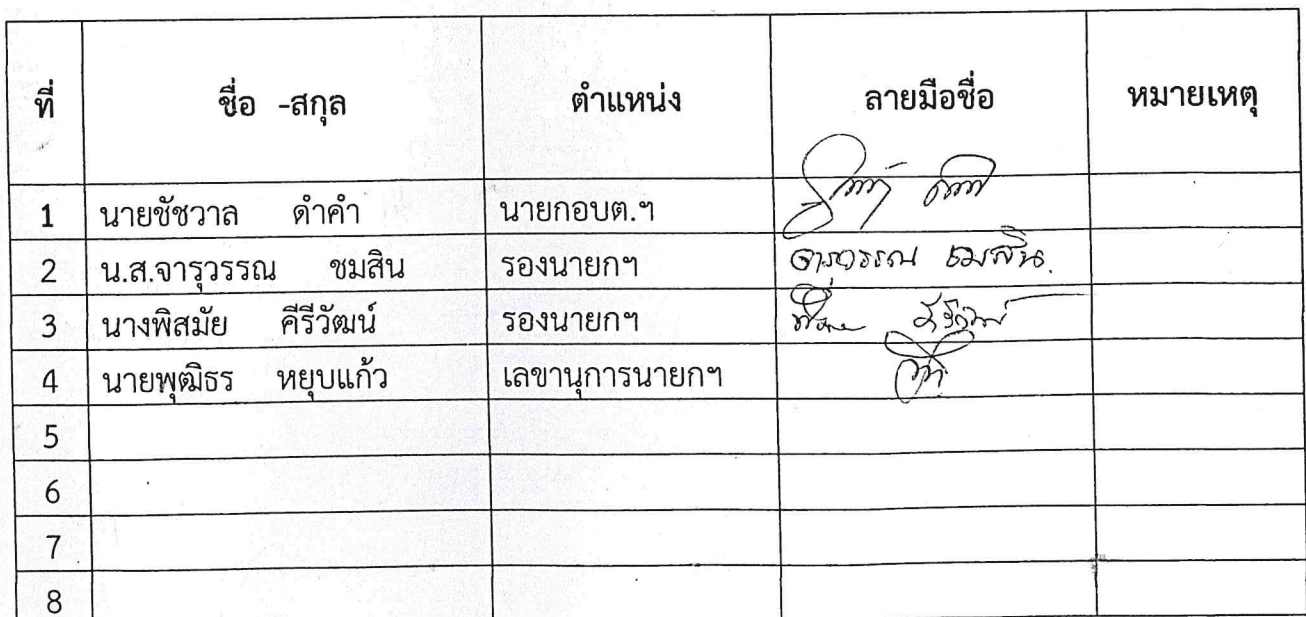 ที่ ชื่อ -สกุล ตำแหน่ง ลายมือชื่อ หมายเหตุ
1 นายชัชวาล ดำคำ นายกอบต.ฯ
2 น.ส.จารุวรรณ ชมสิน รองนายกฯ จารุวรรณ ชมสิน
3 นางพิสมัย คีรีวัฒน์ รองนายกฯ
4 นายพุฒิธร หยุบแก้ว เลขานุการนายกฯ
5
6
7
8